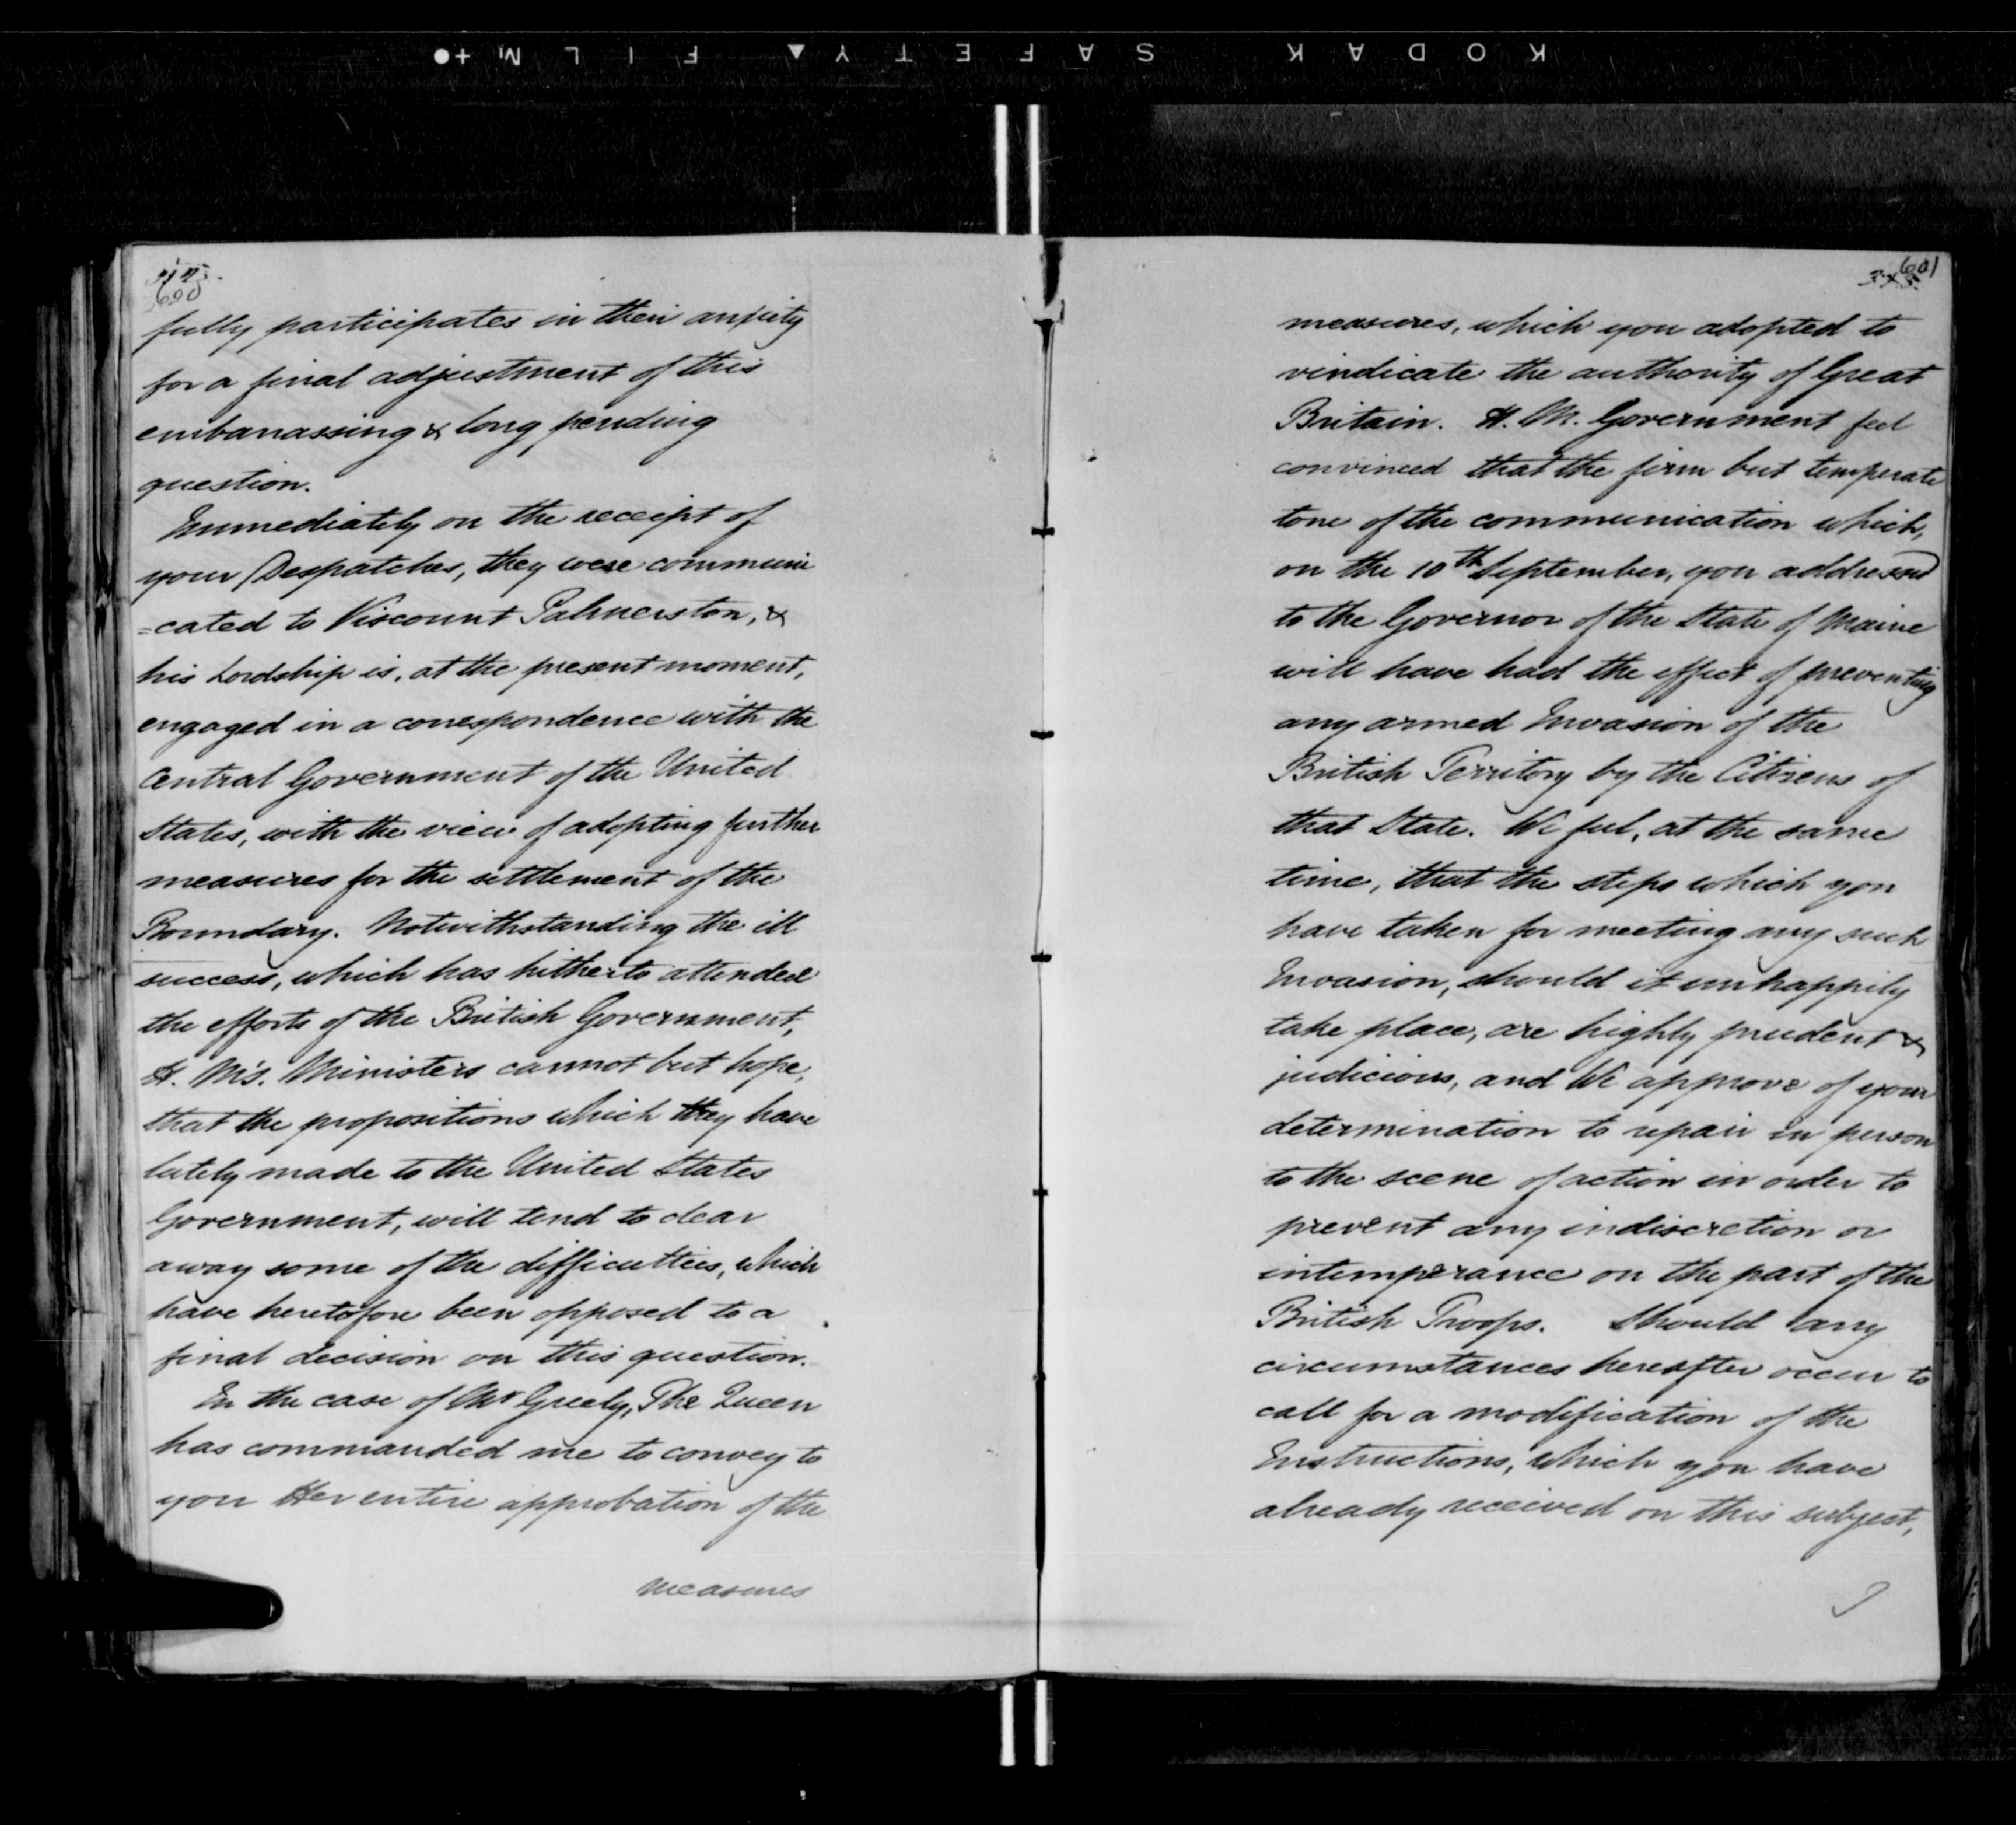 KODAK SAFETY FILM
600
fully participates in their anxiety
for a final adjustment of this
embarrassing & long pending
question.
Immediately on the receipt of
your Despatches, they were communi
=cated to Viscount Palmerston, &
his Lordship is, at the present moment,
engaged in a correspondence with the
Central Government of the United
States, with the view of adopting further
measures for the settlement of the
Boundary. Notwithstanding the ill
success, which has hitherto attended
the efforts of the British Government,
H. M's. Ministers cannot but hope,
that the propositions which they have
lately made to the United States
Government, will tend to clear
away some of the difficulties, which
have heretofore been opposed to a
final decision on this question.
In the case of Mr Greely, The Queen
has commanded me to convey to
you Her entire approbation of the
measures
601
measures, which you adopted to
vindicate the authority of Great
Britain. H. M. Government feel
convinced that the firm but temperate
tone of the communication which,
on the 10th September, you addressed
to the Governor of the State of Maine
will have had the effect of preventing
any armed Invasion of the
British Territory by the Citizens of
that State. We feel, at the same
time, that the steps which you
have taken for meeting any such
Invasion, should it unhappily
take place, are highly prudent &
judicious, and We approve of your
determination to repair in person
to the scene of action in order to
prevent any indiscretion or
intemperance on the part of the
British Troops. Should any
circumstances hereafter occur to
call for a modification of the
Instructions, which you have
already received on this subject,
I